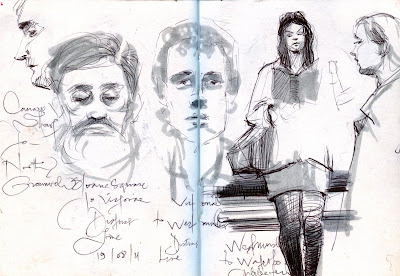 Canary
Wharf
to
North
Greenwich
Sloane Square
to Victoria
District
Line
19/08/11
Victoria
to Westminster
District
Line
Westminster
to Waterloo